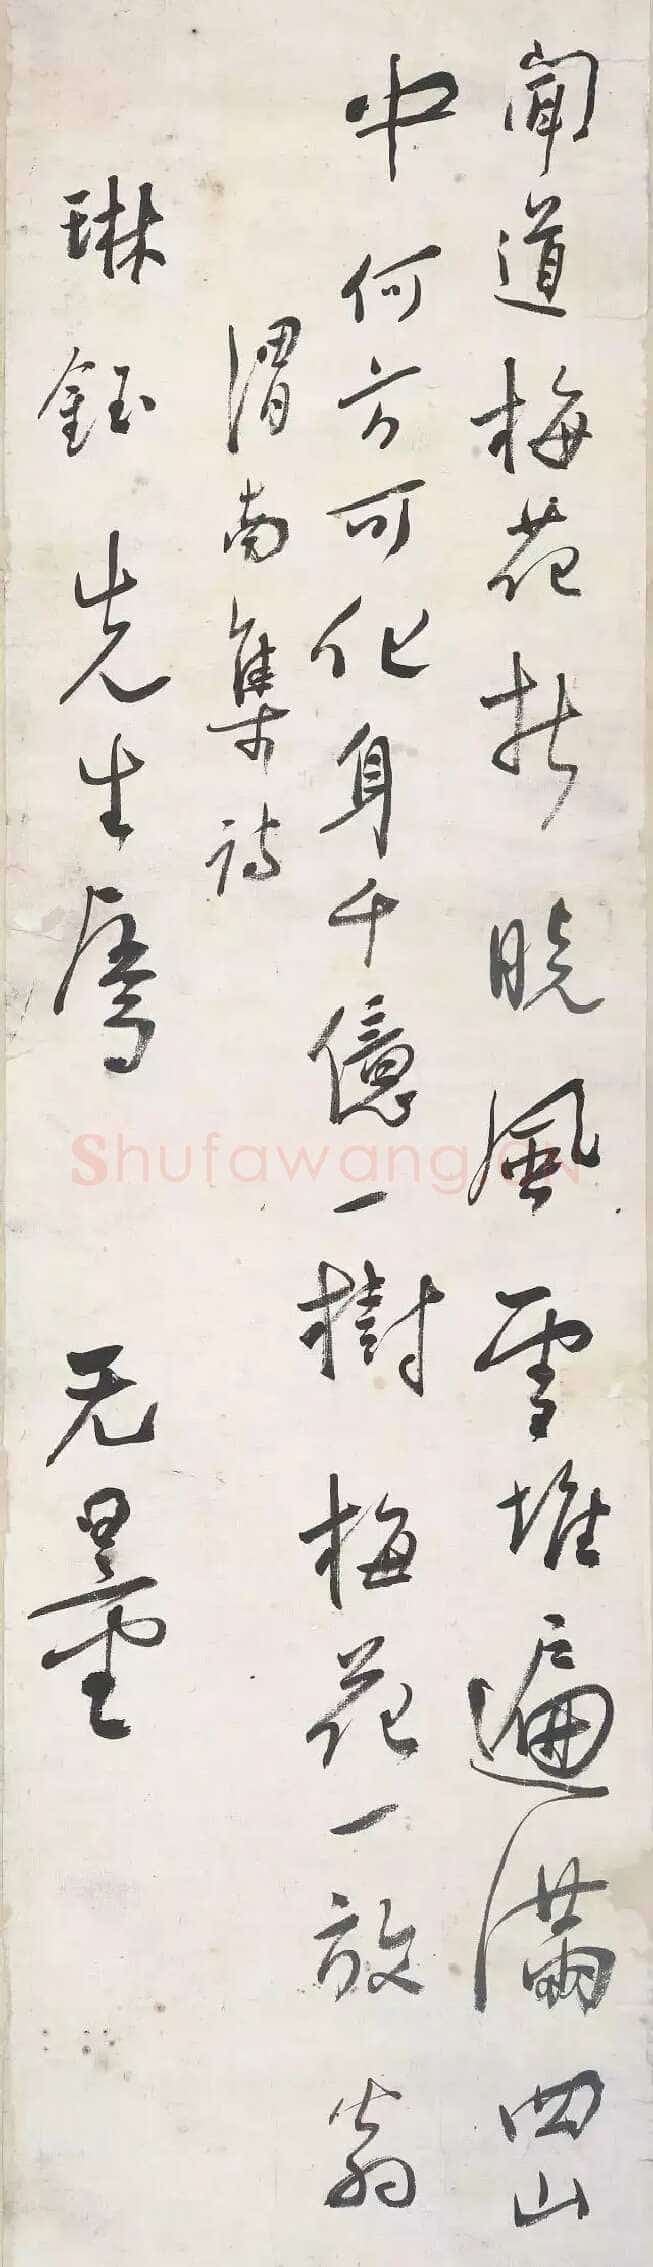 聞道梅花拆晓風雪堆遍滿四山
中何方可化身千億一樹梅花一放翁
渭南集詩
琳鈺先生属 无量
Shufawang.CN